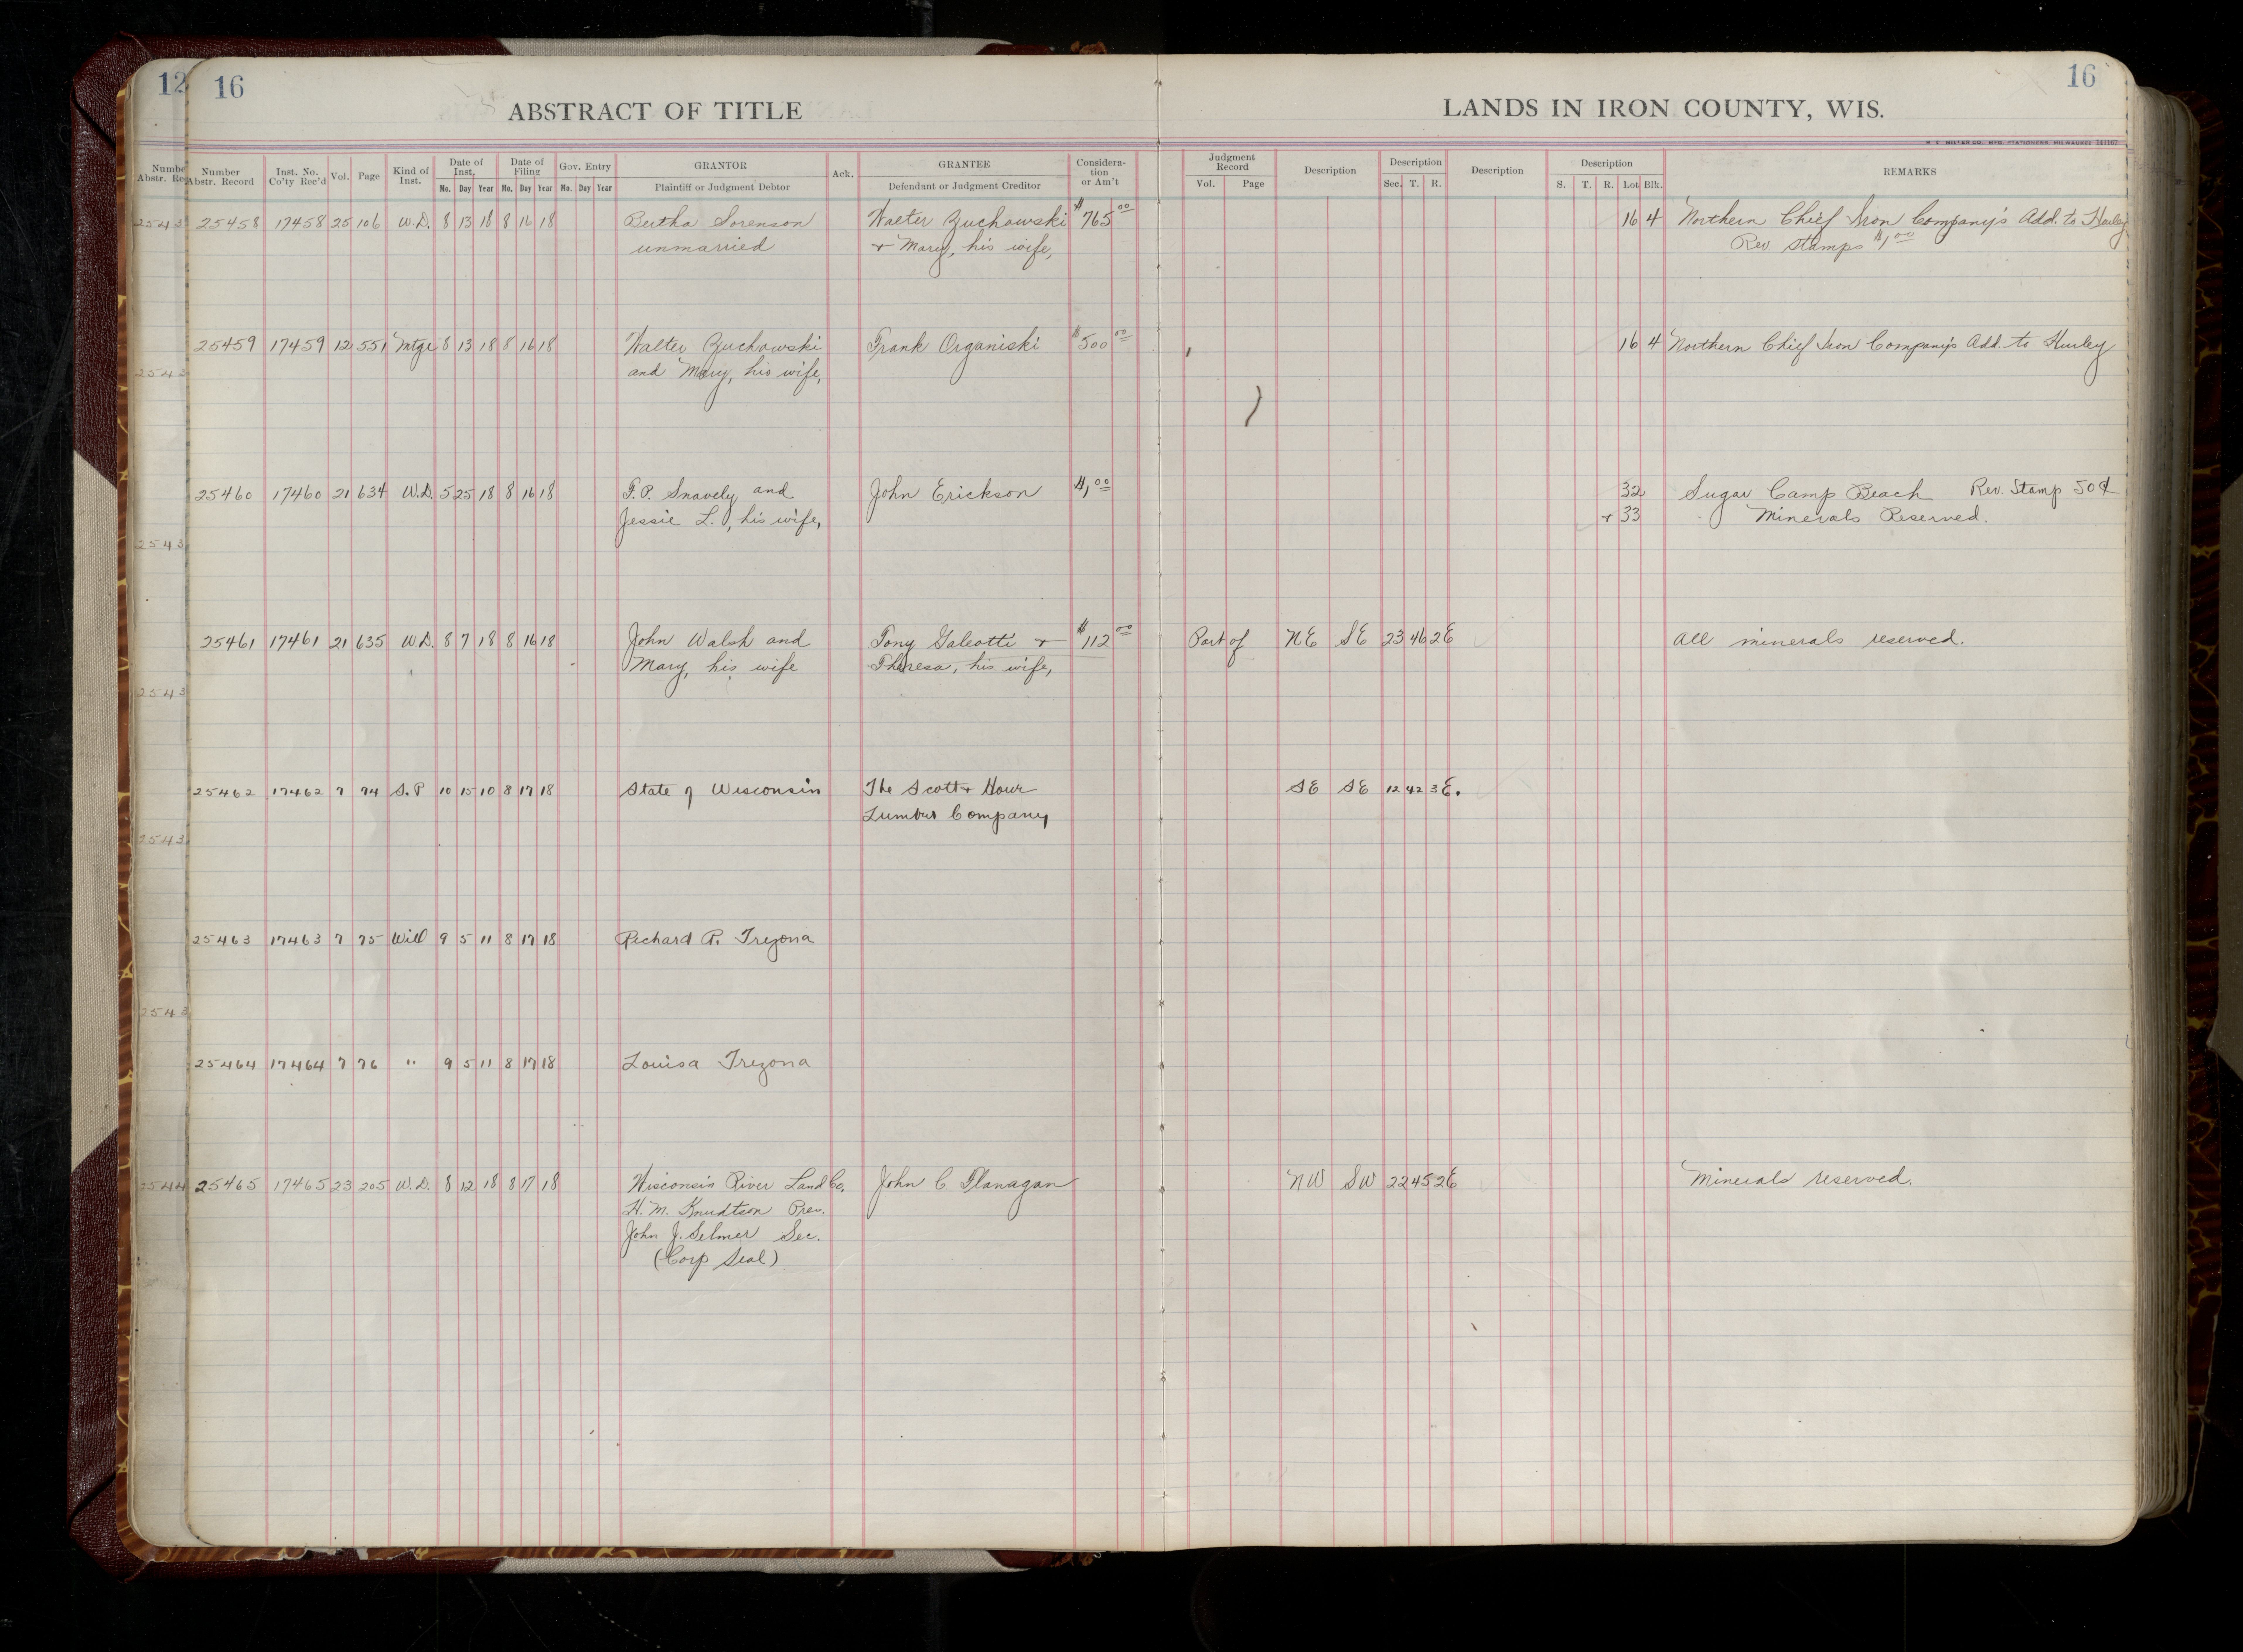 12 16
16
ABSTRACT OF TITLE
LANDS IN IRON COUNTY, WIS.
Number Abstr. Record | Inst. No. Co'ty Rec'd | Vol. | Page | Kind of Inst. | Date of Inst. Mo. Day Year | Date of Filing Mo. Day Year | Gov. Entry Mo. Day Year | GRANTOR Plaintiff or Judgment Debtor | Ack. | GRANTEE Defendant or Judgment Creditor | Consideration or Am't | Judgment Record Vol. Page | Description | Description Sec. T. R. | Description | Description S. T. R. Lot Blk. | REMARKS
25458 17458 25 106 W.D. 8 13 18 8 16 18 Bertha Sorenson Walter Zuchowski $765 00 16 4 Northern Chief Iron Company's Add. to Hurley
unmarried + Mary, his wife, Rev Stamps $1,00
25459 17459 12 551 Mtge 8 13 18 8 16 18 Walter Zuchowski Frank Organiski $500 00 16 4 Northern Chief Iron Company's Add. to Hurley
and Mary, his wife,
25460 17460 21 634 W.D. 5 25 18 8 16 18 F.P. Snavely and John Erickson $1,00 32 Sugar Camp Beach Rev. Stamp 50¢
Jessie L., his wife, + 33 Minerals Reserved.
25461 17461 21 635 W.D. 8 7 18 8 16 18 John Walsh and Tony Galeotti + $112 00 Part of NE SE 23 46 2E All minerals reserved.
Mary, his wife Theresa, his wife,
25462 17462 7 74 S.P 10 15 10 8 17 18 State of Wisconsin The Scott + Howe SE SE 12 42 3E.
Lumber Company
25463 17463 7 75 Will 9 5 11 8 17 18 Richard R. Trezona
25464 17464 7 76 " 9 5 11 8 17 18 Louisa Trezona
25465 17465 23 205 W.D. 8 12 18 8 17 18 Wisconsin River Land Co. John C. Flanagan NW SW 22 45 2E Minerals reserved.
H. M. Knudtson Pres.
John J. Selmer Sec.
(Corp Seal)